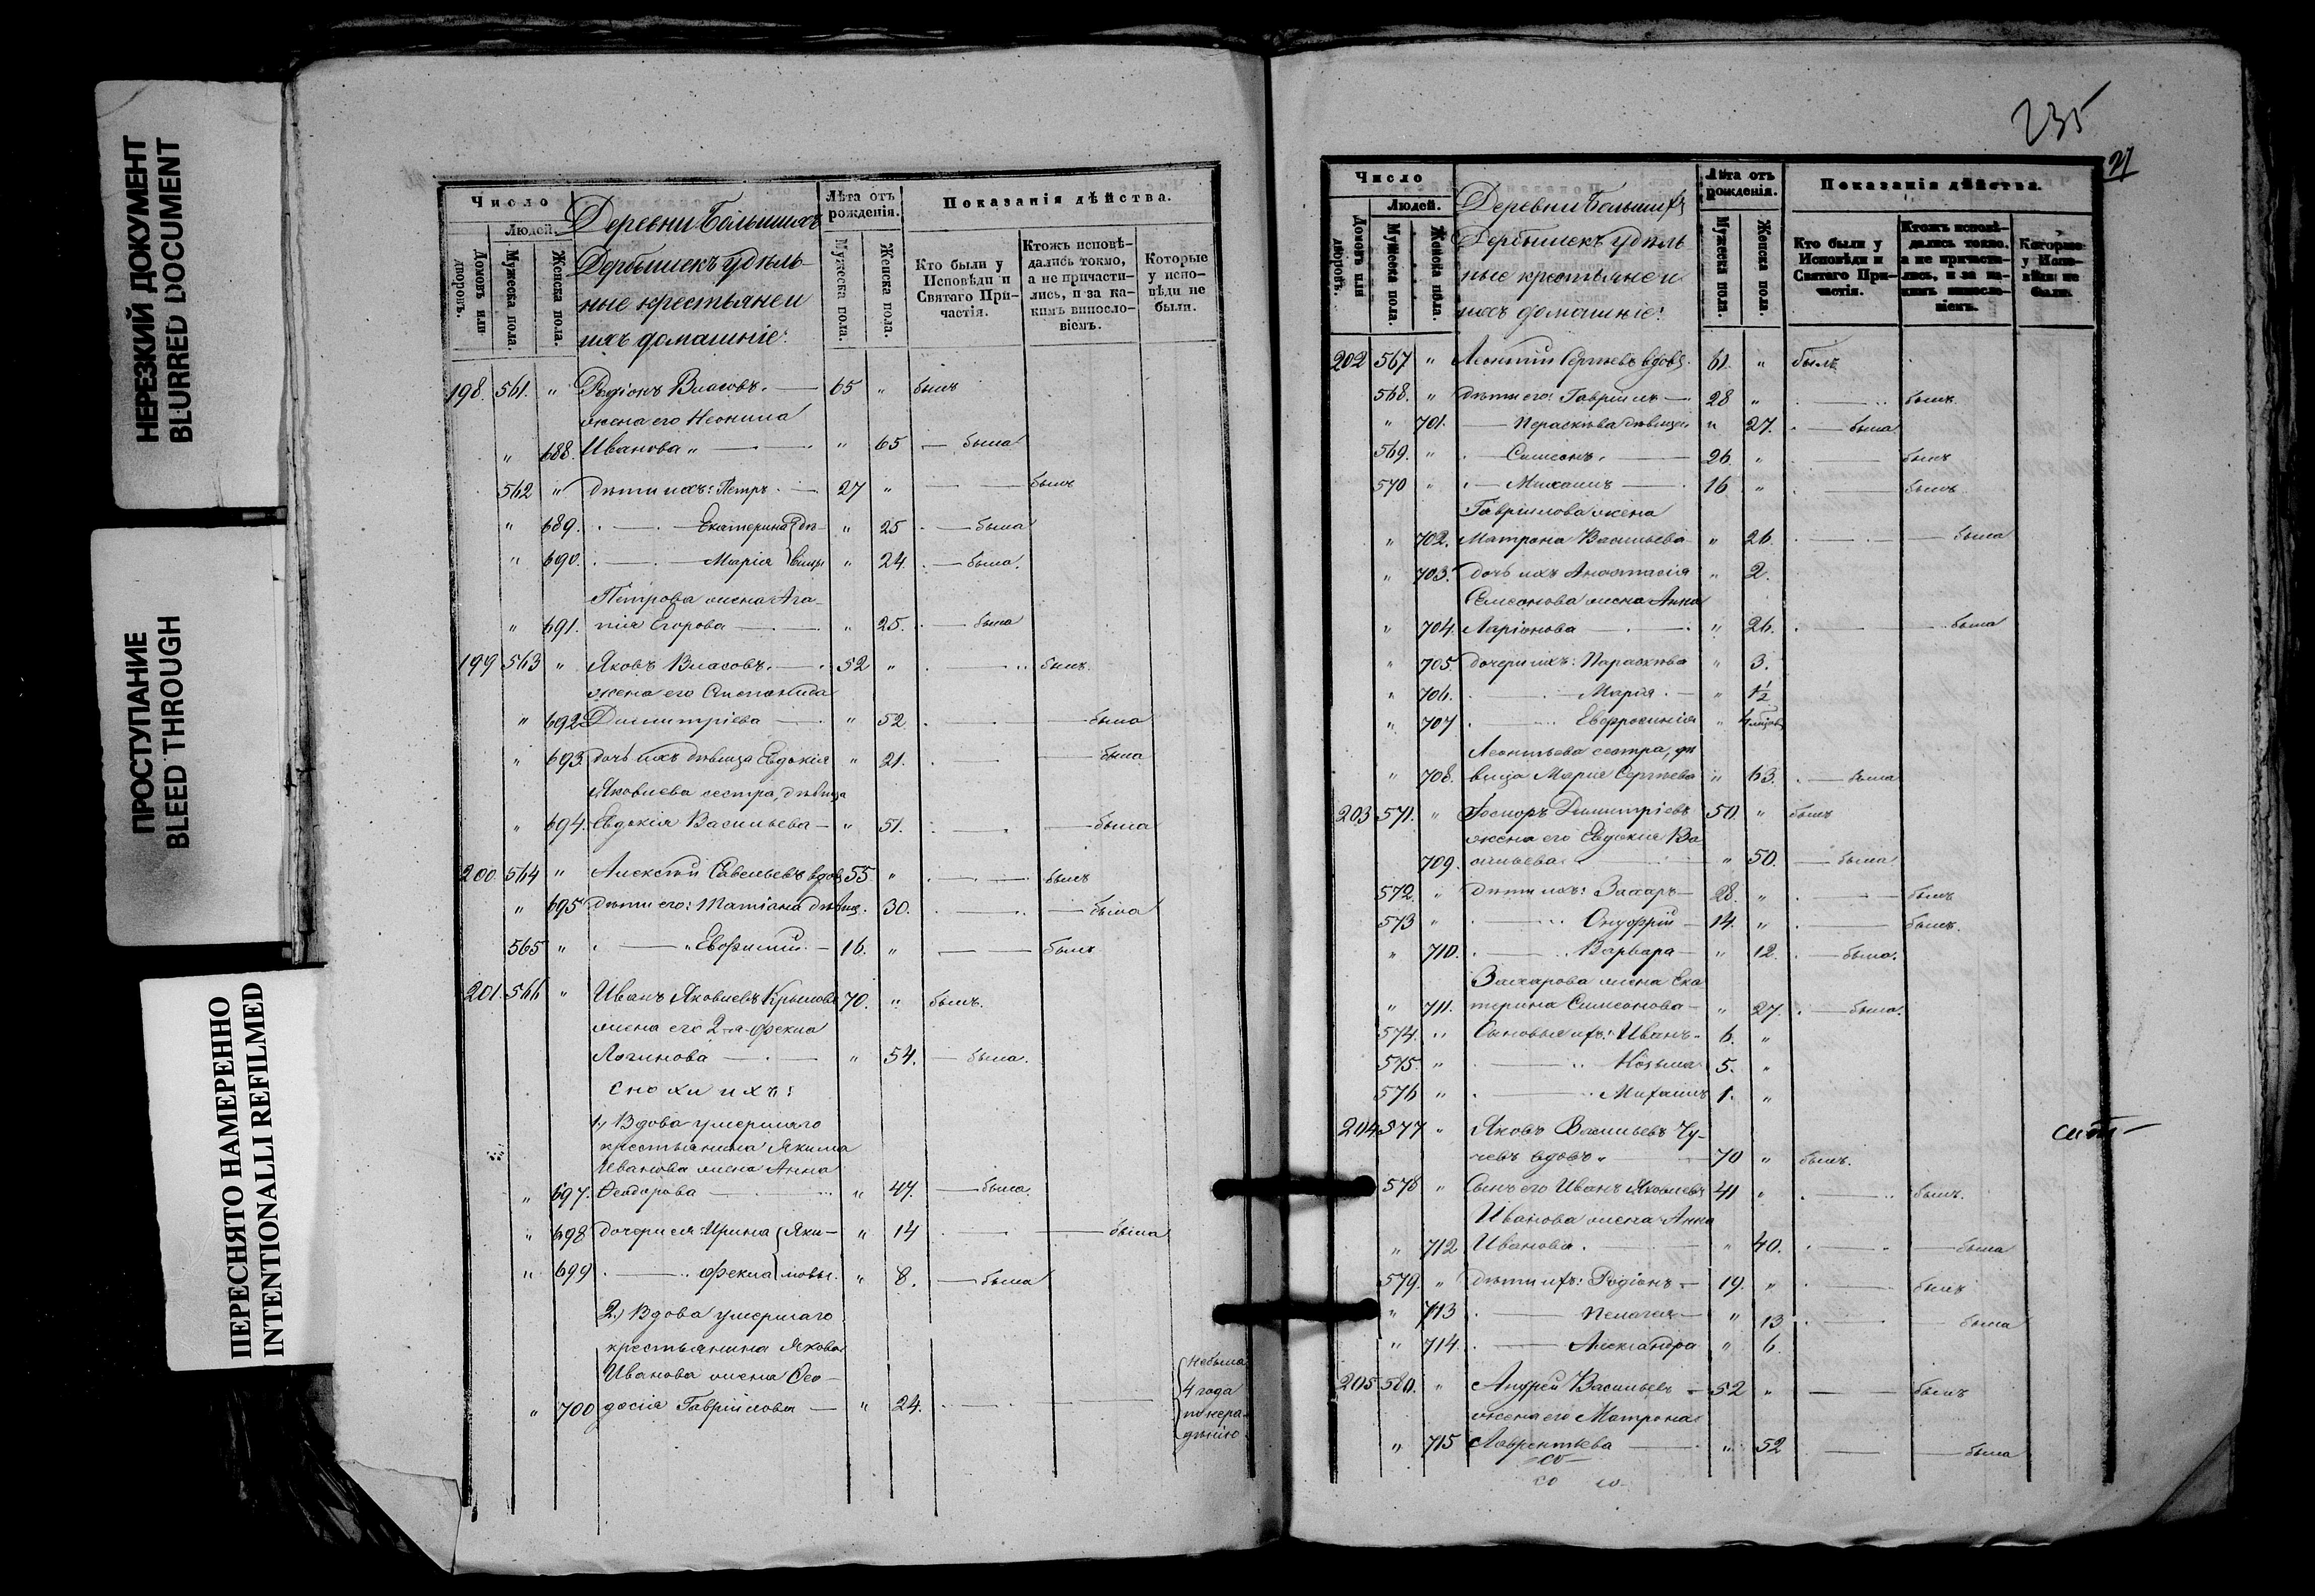 НЕРЕЗКИЙ ДОКУМЕНТ
BLURRED DOCUMENT
ПРОСТУПАНИЕ
BLEED THROUGH
ПЕРЕСНЯТО НАМЕРЕННО
INTENTIONALLI REFILMED
Число
Людей.
Домовъ или дворовъ.
Мужеска пола.
Женска пола.
Деревни Большихъ
Дербышекъ удѣль-
ные крестьяне и
ихъ домашніе:
Лѣта отъ рожденія.
Мужеска пола.
Женска пола.
Показанія дѣйства.
Кто были у Исповѣди и Святаго При-частія.
Ктожъ исповѣ-дались токмо, а не причасти-лись, и за ка-кимъ винослo-віемъ.
Которые у испо-вѣди не были.
198. 561. " Родіонъ Власовъ. 65 " былъ
жена его Неонила
" 688. Иванова " " 65 была
562 " дѣти ихъ: Петръ. 27 " былъ
" 689. Екатерина дѣ- " 25 была
" 690. Марія вицы " 24. была.
Петрова жена Ага-
" 691. пія Егорова " 25. была
199 563 " Яковъ Власовъ. 52 " былъ.
жена его Степанида
" 692 Димитріева " 52. была
" 693. дочь ихъ дѣвица Евдокія " 21. была
Яковлева сестра, дѣвица
" 694. Евдокія Васильева " 51. была
200. 564 " Алексѣй Савельевъ вдов 55 " былъ
" 695 дѣти его: Татіана дѣвиц. 30. была
565 " Евфимій. 16. " былъ
201. 566 " Иванъ Яковлевъ Крыловъ 70. " былъ.
жена его 2-я Фекла
Логинова " 54. была.
Снохи ихъ:
1) Вдова умершаго
крестьянина Якима
Иванова жена Анна
" 697. Ѳеодорова " 47. была.
" 698 дочери ея Ирина Яки- " 14 была
" 699 Фекла мовы. " 8. была
2.) Вдова умершаго
крестьянина Якова
Иванова жена Ѳео-
" 700 досія Гавріилова " 24.
не была
4 года
по нера-
дѣнію
235
27
Число
Людей.
Домовъ или дворовъ.
Мужеска пола.
Женска пола.
Деревни Большихъ
Дербышекъ удѣль
ные крестьяне и
ихъ домашніе:
Лѣта отъ рожденія.
Мужеска пола.
Женска пола.
Показанія дѣйства.
Кто были у Исповѣди и Святаго При-частія.
Ктожъ исповѣ-дались токмо, а не причасти-лись, и за ка-кимъ винослo-віемъ.
Которые у Испо-вѣди не были.
202 567 " Леонтій Сергѣевъ вдов. 61. " былъ
568. " дѣти его: Гавріилъ 28 " былъ.
" 701. Параскѣва дѣвица " 27. была.
569. " Симеонъ. 26. " былъ
570 " Михаилъ 16 " былъ
Гавріилова жена
" 702. Матрона Васильева " 26. была
" 703. дочь ихъ Анастасія " 2.
Симеонова жена Анна
" 704. Ларіонова " 26. была
" 705. дочери ихъ: Параскѣва " 3.
" 706. Марія. " 1½
" 707 Евфросинія "
Леонтьева сестра, дѣ
" 708. вица Марія Сергѣева " 63. была
203 571. " Димитріевъ 50. " былъ
жена его Евдокія Ва
709. сильева. " 50. была
572. " дѣти ихъ: Захаръ 28. " былъ
573 " Онуфрій 14. " былъ.
" 710. Варвара " 12. была.
Захарова жена Ека
" 711. терина Симеонова " 27. была.
574. " Сыновья ихъ: Иванъ. 6. "
575. " Козьма 5. "
576 " Михаилъ 1. "
204 577 " Яковъ Васильевъ Чу-
чевъ вдовъ. 70 " былъ.
578 " Сынъ его Иванъ Яковлевъ 41 " былъ.
Иванова жена Анна
" 712 Иванова. " 40. была
579. " дѣти ихъ: Родіонъ 19. " былъ
" 713 Пелагея " 13 была
" 714. Александра " 6.
205 580. " Андрей Васильевъ 52 " былъ
жена его Матрона
" 715 Лаврентьева " 52 была